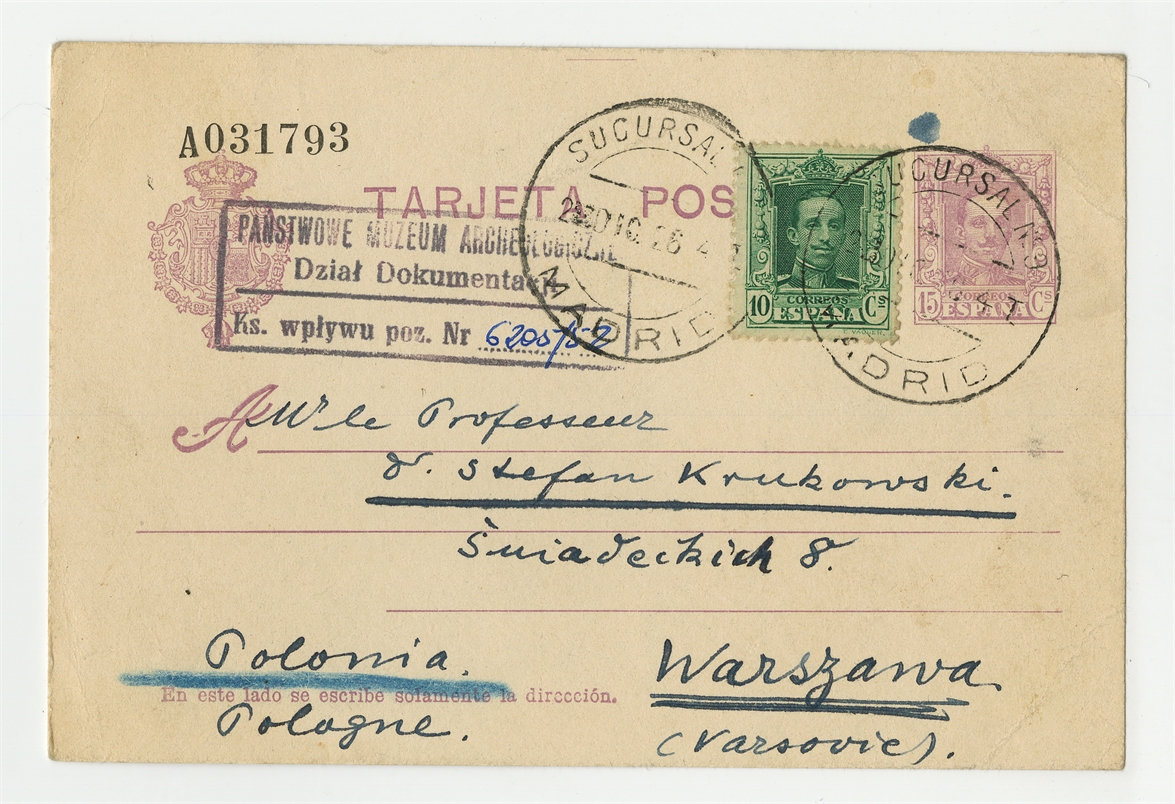 A031793
TARJETA POS
PAŃSTWOWE MUZEUM ARCHEOLOGICZNE
Dział Dokumentacji
Ks. wpływu poz. Nr 6205/52
SUCURSAL
DIC 26
MADRID
10 CORREOS Cs
ESPAÑA
E. VAQUER
SUCURSAL Nº 3
MADRID
CORREOS
15 ESPAÑA Cs
A Mr le Professeur
d. Stefan Krukowski.
Śniadeckich 8.
Polonia.
Warszawa
En este lado se escribe solamente la dirección.
Pologne.
(Varsovie).